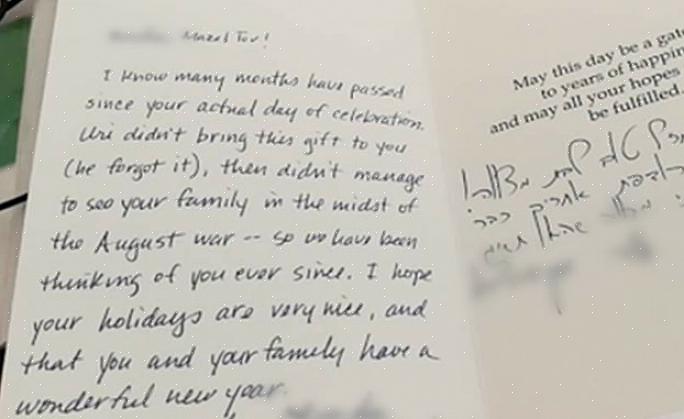 Mazel Tov!
I know many months have passed
since your actual day of celebration.
Uri didn't bring this gift to you
(he forgot it), then didn't manage
to see your family in the midst of
the August war -- so we have been
thinking of you ever since. I hope
your holidays are very nice, and
that you and your family have a
wonderful new year.
May this day be a gate
to years of happin
and may all your hopes
be fulfilled.
טוב לבת מצווה
אחרים כבר